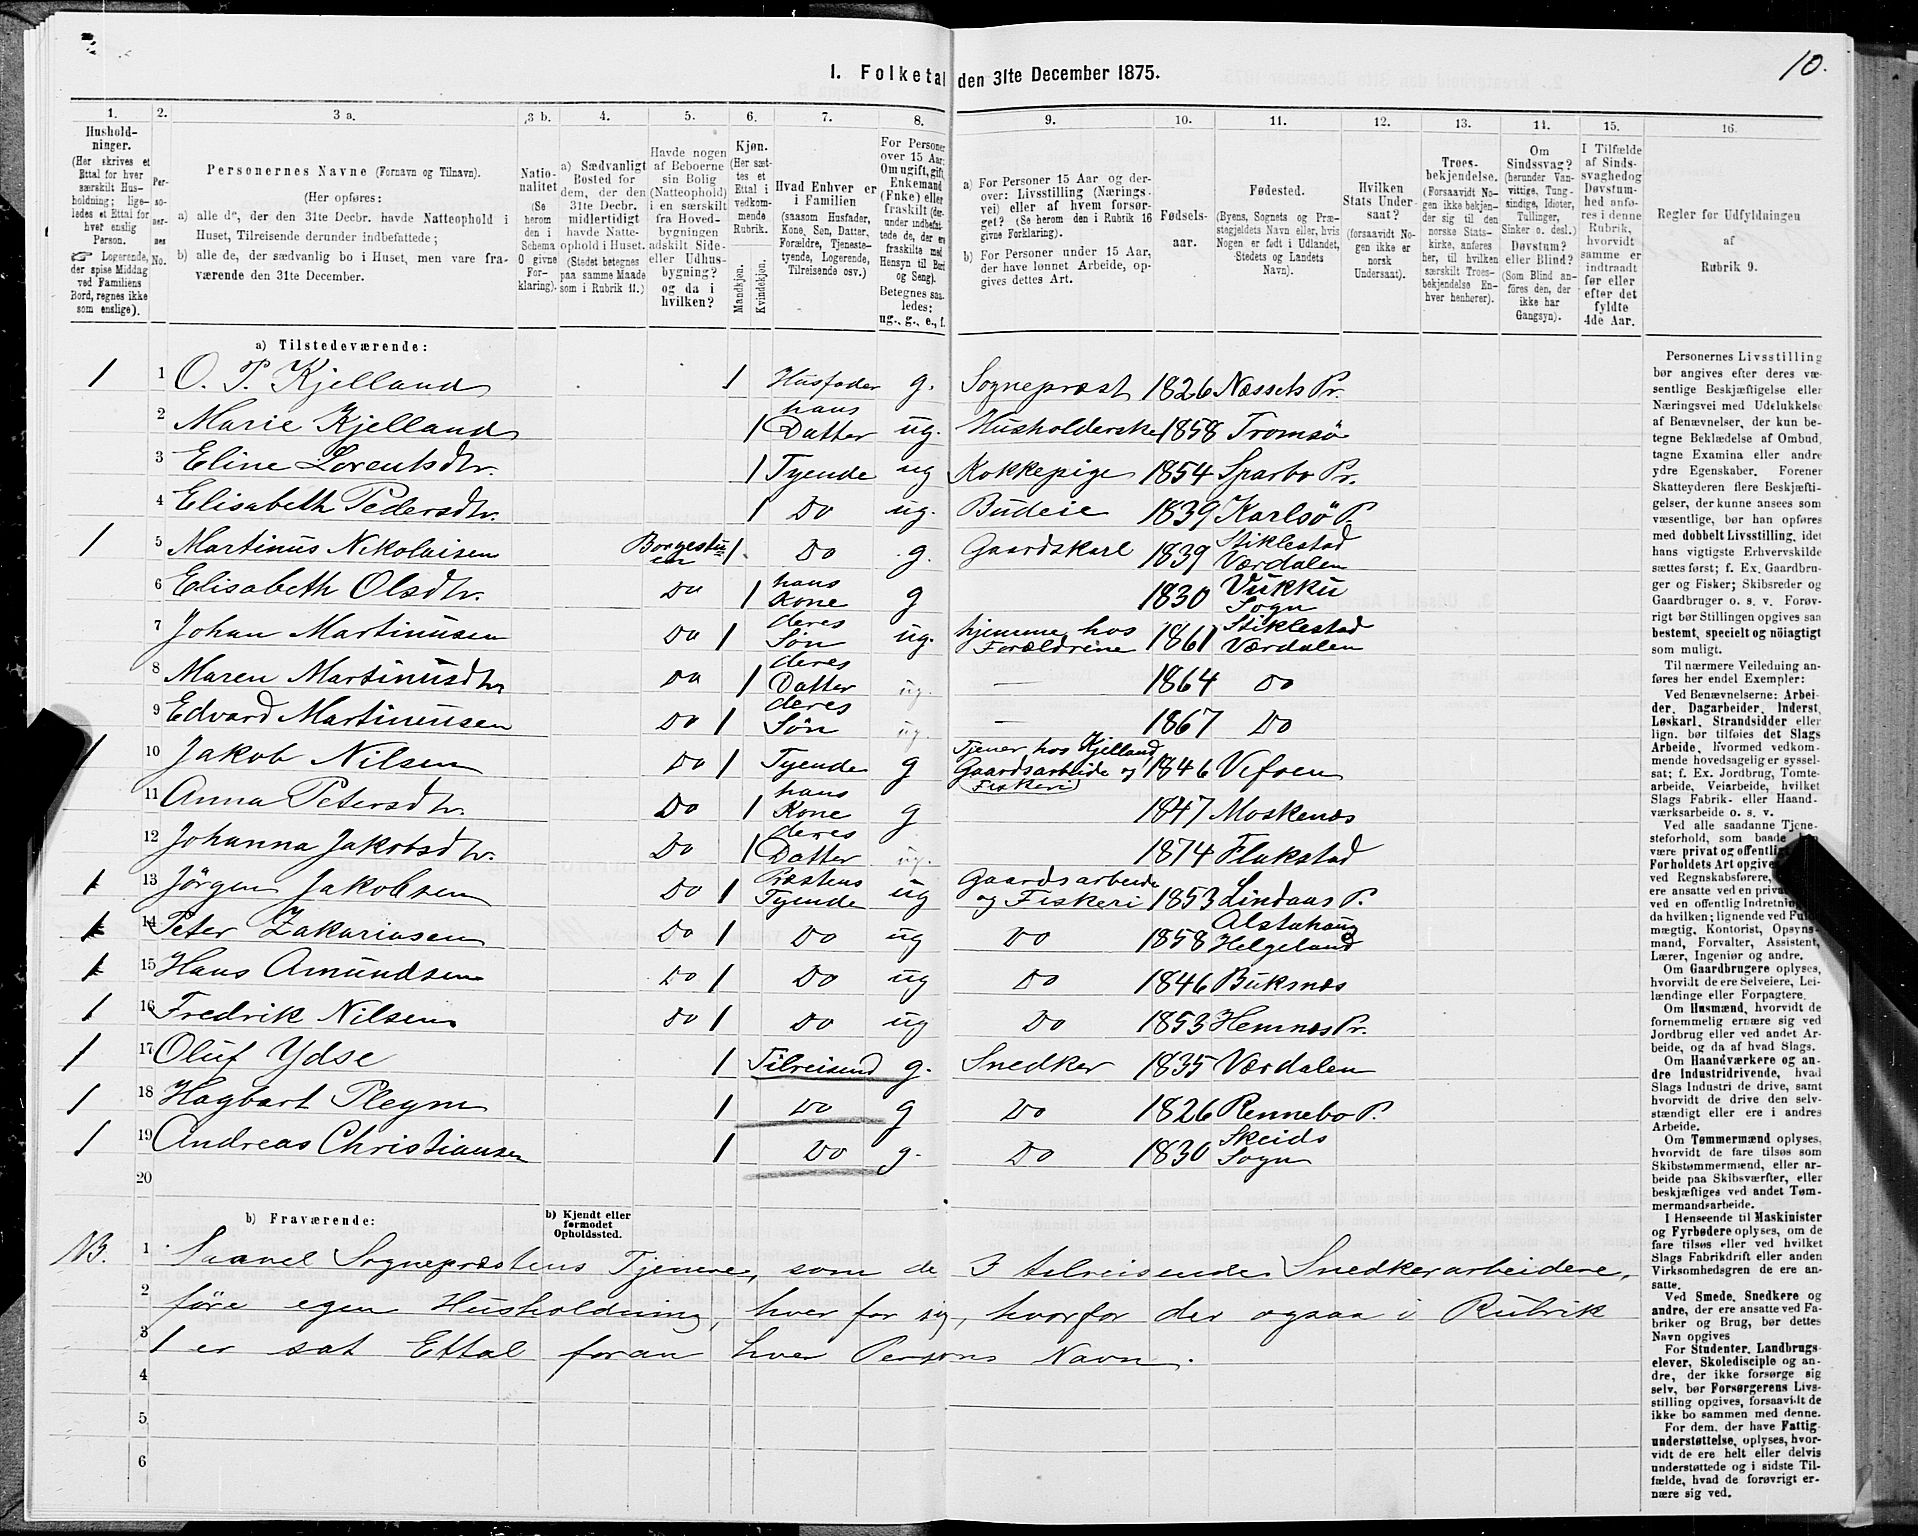 10.
1. Folketal den 31te December 1875.
1. 2. 3 a. 3 b. 4. 5. 6. 7. 8. 9. 10. 11. 12. 13. 14. 15. 16.
Hushold-
ninger.
(Her skrives et
Ettal for hver
særskilt Hus-
holdning; lige-
ledes et Ettal for
hver enslig
Person.
Logerende,
der spise Middag
ved Familiens
Bord, regnes ikke
som enslige).
Per-
so-
ner-
nes
No.
Personernes Navne (Fornavn og Tilnavn).
(Her opføres:
a) alle de, der den 31te Decbr. havde Natteophold i
Huset, Tilreisende derunder indbefattede;
b) alle de, der sædvanlig bo i Huset, men vare fra-
værende den 31te December.
Natio-
nalitet
(Se
herom
den i
Schema
O givne
For-
klaring).
a) Sædvanligt
Bosted for
dem, der den
31te Decbr.
midlertidigt
havde Natte-
ophold i Huset.
(Stedet betegnes
paa samme Maade
som i Rubrik 11.)
Havde nogen
af Beboerne
sin Bolig
(Natteophold)
i en særskilt
fra Hoved-
bygningen
adskilt Side-
eller Udhus-
bygning?
og da i
hvilken?
Kjøn.
(Her sæt-
tes et
Ettal i
vedkom-
mende
Rubrik.
Mandkjøn.
Kvindekjøn.
Hvad Enhver er
i Familien
(saasom Husfader,
Kone, Søn, Datter,
Forældre, Tjeneste-
tyende, Logerende,
Tilreisende osv.)
For Personer
over 15 Aar:
Om ugift, gift,
Enkemand
(Enke) eller
fraskilt (der-
under indbefat-
tede de, der ere
fraskilte med
Hensyn til Bord
og Seng).
Betegnes saa-
ledes:
ug., g., e., f.
a) For Personer 15 Aar og der-
over: Livsstilling (Nærings-
vei) eller af hvem forsør-
get? (Se herom den i Rubrik 16
givne Forklaring).
b) For Personer under 15 Aar,
der have lønnet Arbeide, op-
gives dettes Art.
Fødsels-
aar.
Fødested.
(Byens, Sognets og Præ-
stegjeldets Navn eller, hvis
Nogen er født i Udlandet,
Stedets og Landets
Navn).
Hvilken
Stats Under-
saat?
(forsaavidt No-
gen ikke er
norsk
Undersaat).
Troes-
bekjendelse.
(Forsaavidt No-
gen ikke bekjen-
der sig til den
norske Stats-
kirke, anføres
her, til hvilken
særskilt Troes-
bekjendelse En-
hver henhører).
Om
Sindssvag?
(herunder Van-
vittige, Tung-
sindige, Idioter,
Tullinger,
Sinker o. desl.)
Døvstum?
eller Blind?
(Som Blind an-
føres den, der
ikke har
Gangsyn).
I Tilfælde
af Sinds-
svaghed og
Døvstum-
hed anfø-
res i denne
Rubrik,
hvorvidt
samme er
indtraadt
før eller
efter det
fyldte
4de Aar.
Regler for Udfyldningen
af
Rubrik 9.
a) Tilstedeværende:
1 1 O. P. Kjelland 1 Husfader g. Sognepræst 1826 Næssets Pr.
2 Marie Kjelland 1 hans Datter ug. Husholderske 1858 Tromsø
3 Eline Lorentsdtr. 1 Tyende ug Kokkepige 1854 Sparbo Pr.
4 Elisabeth Pedersdtr. 1 Do ug. Budeie 1839 Karlsö P.
1 5 Martinus Nikolaisen Borgestuen 1. Do g. Gaardskarl 1839 Stiklestad Værdalen
6 Elisabeth Olsdtr. Do 1 hans Kone g 1830 Vukku Sogn
7 Johan Martinusen Do 1 deres Søn ug. hjemme hos Forældrene 1861 Stiklestad Værdalen
8 Maren Martinusdtr Do 1 deres Datter ug. — 1864 Do
9 Edvard Martinusen Do 1 deres Søn ug. — 1867 Do
1 10 Jakob Nilsen Do 1 Tyende g Tjener hos Kjelland Gaardsarbeide og Fiskeri 1846 Vefsen
11 Anna Petersdtr. Do 1 hans Kone g 1847 Moskenæs
12 Johanna Jakobsdtr. Do 1 deres Datter ug. 1874 Flakstad
1 13 Jörgen Jakobsen Do 1 Præstens Tyende ug Gaardsarbeide og Fiskeri 1853 Lindaas P.
1 14 Peter Zakariasen Do 1 Do ug Do 1858 Alstahoug Helgeland
1 15 Hans Amundsen Do 1 Do ug Do 1846 Buksnæs
1 16 Fredrik Nilsen Do 1 Do ug Do 1853 Hemnæs Pr.
1 17 Oluf Ydse 1 Tilreisend g. Snedker 1835 Værdalen
1 18 Hagbart Plegm 1 Do g Do 1826 Rennebo P.
1 19 Andreas Christiansen 1 Do g. Do 1830 Skeids Sogn
20
b) Fraværende:
b) Kjendt eller
formodet
Opholdssted.
NB. 1 Saavel Sognepræstens Tjenere, som de 3 tilreisende Snedkerarbeidere,
2 føre egen Husholdning, hver for sig, hvorfor der ogsaa i Rubrik
3 1 er sat Ettal foran hver Persons Navn.
4
5
6
Personernes Livsstilling
bør angives efter deres væ-
sentlige Beskjæftigelse eller
Næringsvei med Udelukkelse
af Benævnelser, der kun be-
tegne Beklædelse af Ombud,
tagne Examina eller andre
ydre Egenskaber. Forener
Skatteyderen flere Beskjæfti-
gelser, der kunne ansees som
væsentlige, bør han opføres
med dobbelt Livsstilling, idet
hans vigtigste Erhvervskilde
sættes først; f. Ex. Gaardbru-
ger og Fisker; Skibsreder og
Gaardbruger o. s. v. Forøv-
rigt bør Stillingen opgives saa
bestemt, specielt og nöiagtigt
som muligt.
Til nærmere Veiledning an-
føres her endel Exempler:
Ved Benævnelserne: Arbei-
der, Dagarbeider, Inderst,
Løskarl, Strandsidder eller
lign. bør tilføies det Slags
Arbeide, hvormed vedkom-
mende hovedsagelig er syssel-
sat; f. Ex. Jordbrug, Tomte-
arbeide, Veiarbeide, hvilket
Slags Fabrik- eller Haand-
værksarbeide o. s. v.
Ved alle saadanne Tjene-
steforhold, som baade
være privat og offentligt
Forholdets Art opgives
ved Regnskabsførere,
ere ansatte ved en privat
ved en offentlig Indretning
da hvilken; lignende ved Fuld-
mægtig, Kontorist, Opsyns-
mand, Forvalter, Assistent,
Lærer, Ingeniør og andre.
Om Gaardbrugere oplyses,
hvorvidt de ere Selveiere, Lei-
lændinge eller Forpagtere.
Om Husmænd, hvorvidt de
fornemmelig ernære sig ved
Jordbrug eller ved andet Ar-
beide, og da af hvad Slags.
Om Haandværkere og an-
dre Industridrivende, hvad
Slags Industri de drive, samt
hvorvidt de drive den selv-
stændigt eller ere i andres
Arbeide.
Om Tømmermænd oplyses,
hvorvidt de fare tilsøs som
Skibstømmermænd, eller ar-
beide paa Skibsværfter, eller
beskjæftiges ved andet Tøm-
mermandsarbeide.
I Henseende til Maskinister
og Fyrbødere oplyses, om de
fare tilsøs eller ved hvilket
Slags Fabrikdrift eller anden
Virksomhedsgren de ere an-
satte.
Ved Smede, Snedkere og
andre, der ere ansatte ved Fa-
briker og Brug, bør dettes
Navn opgives
For Studenter, Landbrugs-
elever, Skoledisciple og an-
dre, der ikke forsørge sig
selv, bør Forsørgerens Livs-
stilling opgives, forsaavidt de
ikke bo sammen med denne.
For dem, der have Fattig-
understøttelse, oplyses, hvor-
vidt de ere helt eller delvis
understøttede og i sidste Til-
fælde, hvad de forøvrigt er-
nære sig ved.